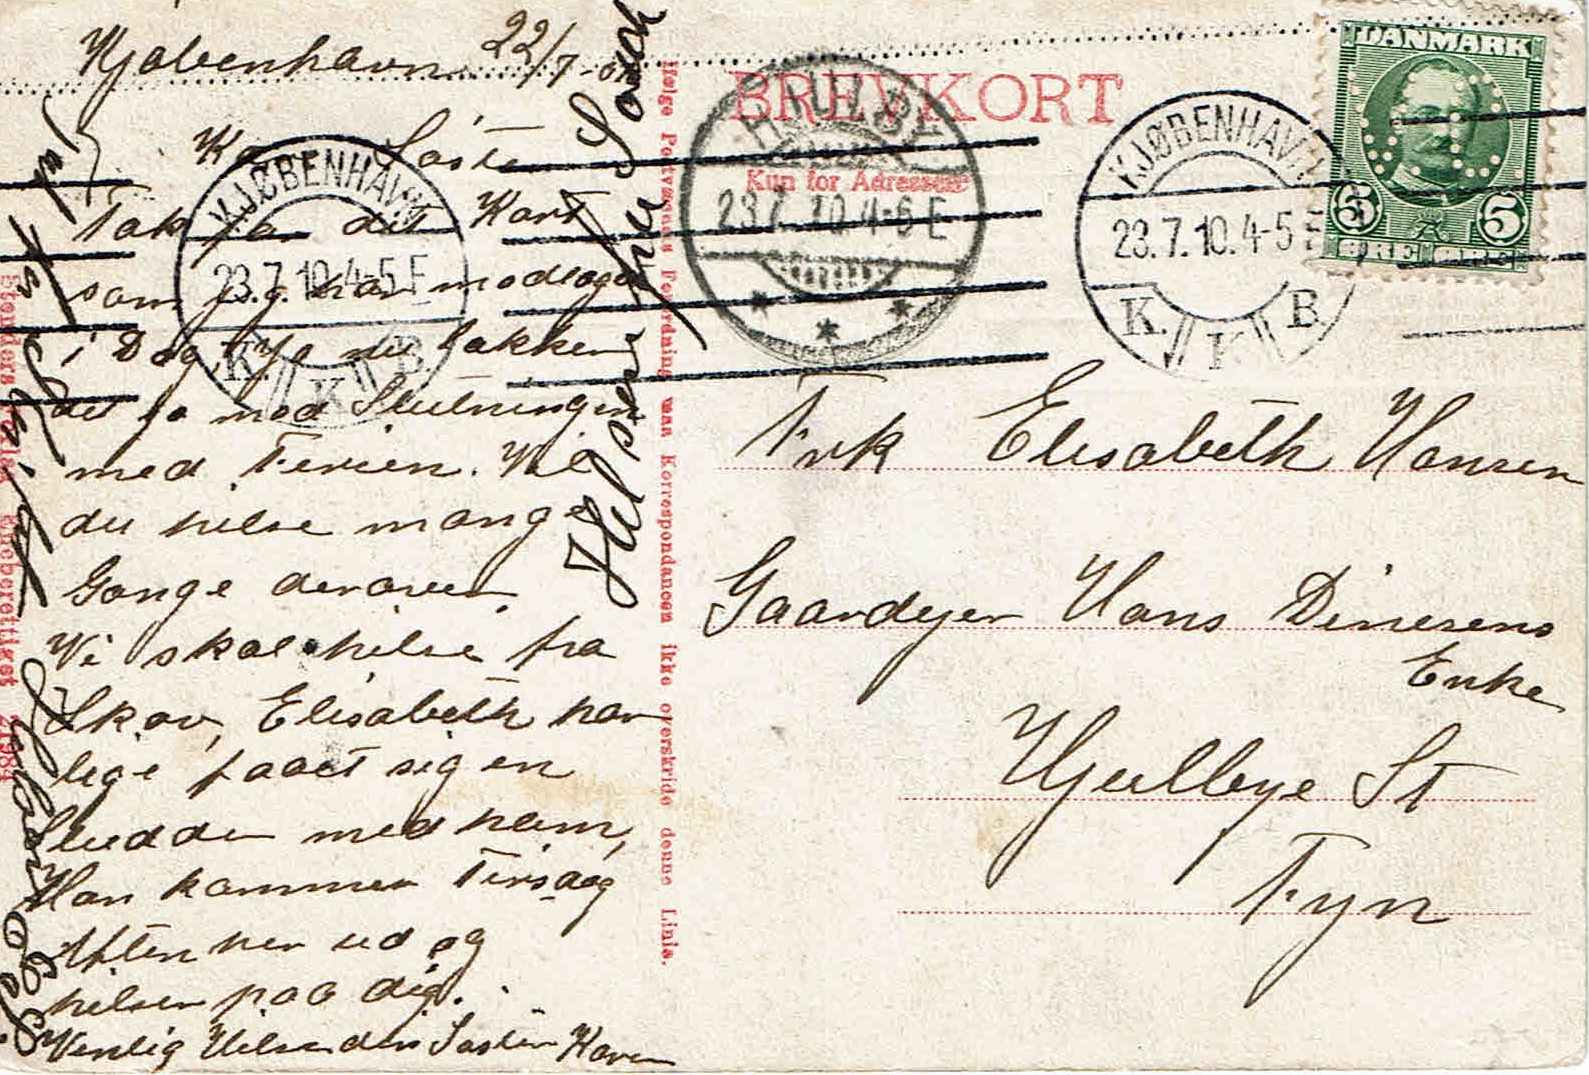 Kjøbenhavn 22/7-
Kære Søster
Tak for dit Kort
som jeg har modtaget
i Dag, Ja nu lakker
det jo mod Slutningen
med Ferien. Vil
du hilse mange
Gange derovre.
Vi skal hilse fra
Skov, Elisabeth har
lige faaet sig en
Sludder med ham,
Han kommer Tirsdag
Aften her ud og
hilser paa dig.
Venlig Hilsen din Søster Karen
Hilsen
BREVKORT
Kun for Adressen
Ifølge Postvæsenets Forordning maa Korrespondancen ikke overskride denne Linie.
Stenders Forlag Eneberettiget 21984
HJULBY
23.7.10.4-6 E
KJØBENHAVN
23.7.10.4-5 E
K. K B.
KJØBENHAVN
23.7.10.4-5 E
K. K B.
DANMARK
5 5
ØRE ØRE
Frk Elisabeth Hansen
Gaardejer Hans Dinesens
Enke
Hjulbye St
Fyn